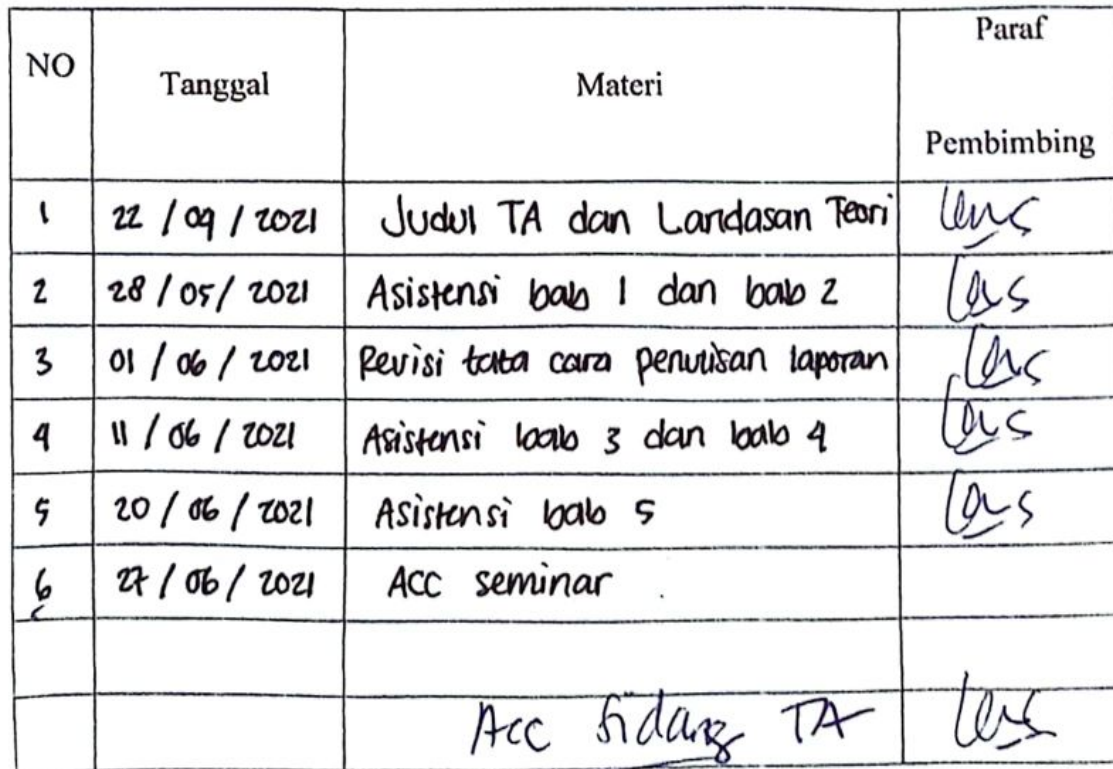 NO
Tanggal
Materi
Paraf
Pembimbing
1 22 / 04 / 2021 Judul TA dan Landasan Teori
2 28 / 05 / 2021 Asistensi bab 1 dan bab 2
3 01 / 06 / 2021 Revisi tata cara penulisan laporan
4 11 / 06 / 2021 Asistensi bab 3 dan bab 4
5 20 / 06 / 2021 Asistensi bab 5
6 27 / 06 / 2021 ACC seminar
Acc Sidang TA